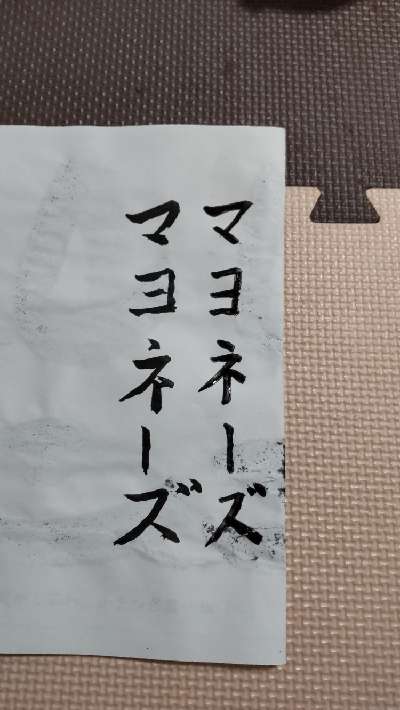 マヨネーズ
マヨネーズ